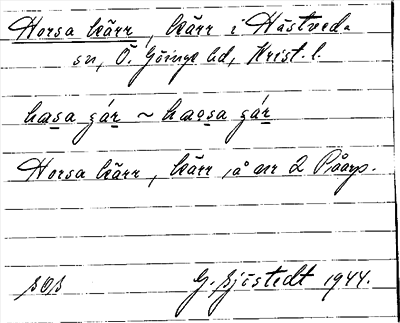 Horsa kärr, kärr i Hästveda
sn, Ö. Göinge hd, Krist. l.
hasa gár ~ haesa gár
Horsa kärr, kärr, å nr 2 Påarp.
sos G. Sjöstedt 1944.